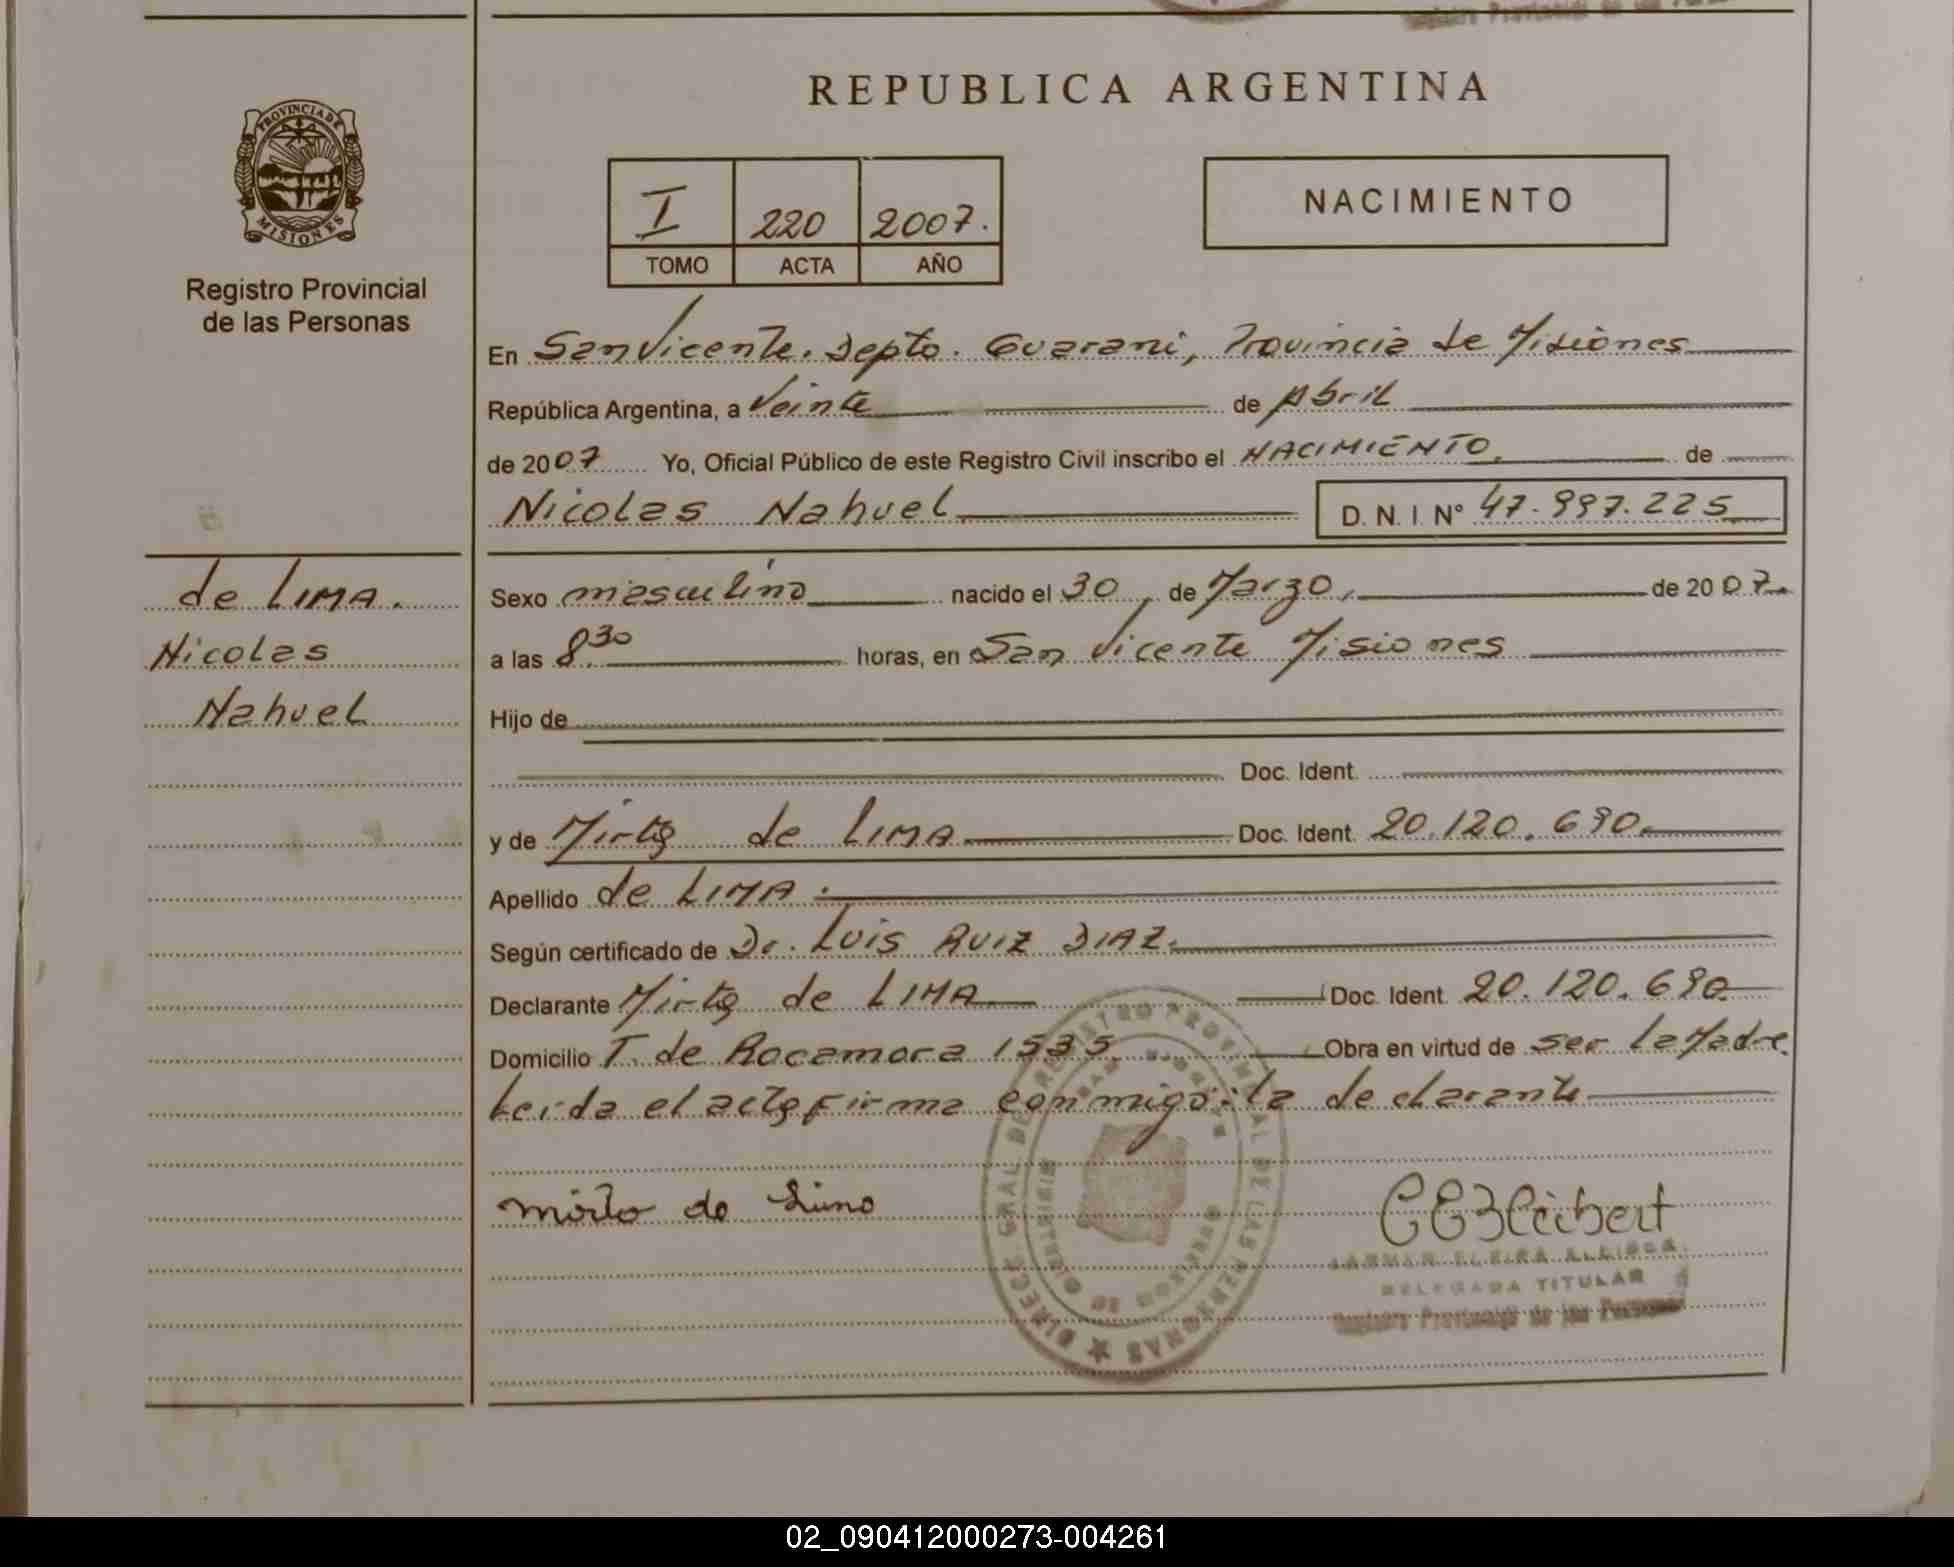 REPUBLICA ARGENTINA
PROVINCIA DE
MISIONES
Registro Provincial
de las Personas
I 220 2007.
TOMO ACTA AÑO
NACIMIENTO
En San Vicente. Depto. Guarani, Provincia de Misiones
República Argentina, a Veinte de Abril
de 2007 Yo, Oficial Público de este Registro Civil inscribo el NACIMIENTO. de
Nicolas Nahuel D. N. I. N° 47.997.225
de LIMA.
Nicolas
Nahuel
Sexo masculino nacido el 30 de Marzo. de 2007.
a las 8.30 horas, en San Vicente Misiones
Hijo de
Doc. Ident.
y de Mirta de LIMA Doc. Ident. 20.120.690.
Apellido de LIMA.
Según certificado de Dr. Luis RUIZ DIAZ.
Declarante Mirta de LIMA Doc. Ident. 20.120.690
Domicilio T. de Rocamora 1535. Obra en virtud de ser la Madre.
Leida el acta firma conmigo: la declarante
mirta de Lima
DELEGADA TITULAR
Registro Provincial de las Personas
DIRECC. GRAL. DE REGISTRO PROVINCIAL DE LAS PERSONAS
02_090412000273-004261